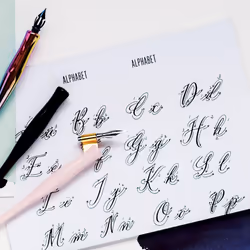 ALPHABET ALPHABET
B b C c D d
E e f G g H h
I i J j K k L l
M m N n O o P p